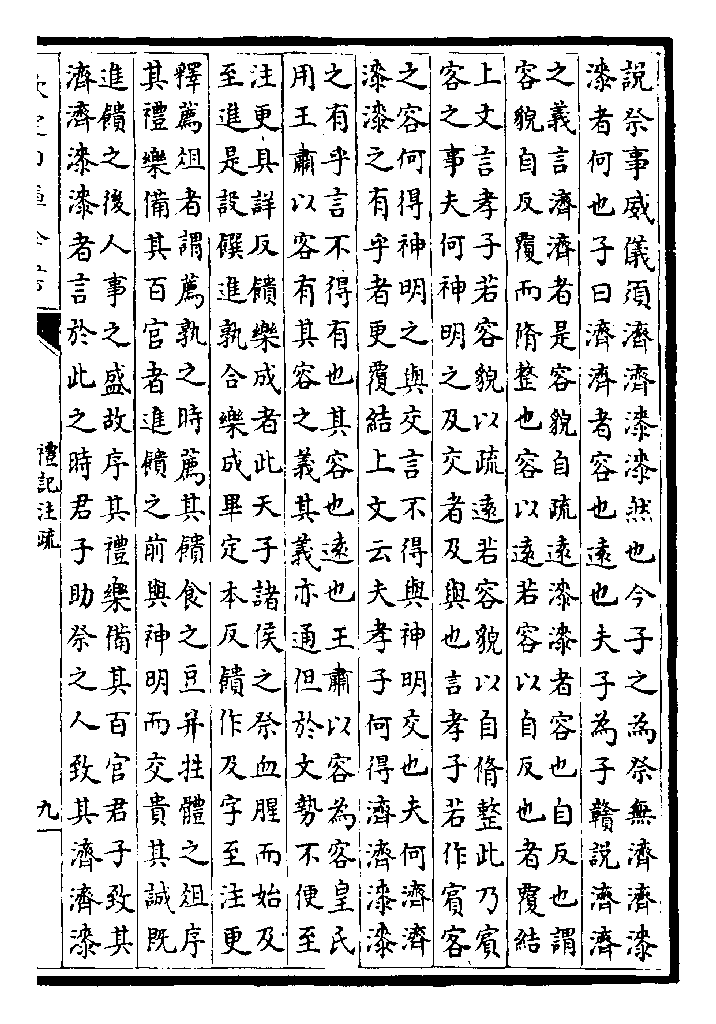 說祭事威儀須濟濟漆漆然也今子之為祭無濟濟漆
漆者何也子曰濟濟者容也遠也夫子為子贛說濟濟
之義言濟濟者是容貌自疏遠漆漆者容也自反也謂
容貌自反覆而脩整也容以遠若容以自反也者覆結
上文言孝子若容貌以疏遠若容貌以自脩整此乃賓
客之事夫何神明之及交者及與也言孝子若作賓客
之容何得神明之與交言不得與神明交也夫何濟濟
漆漆之有乎者更覆結上文云夫孝子何得濟濟漆漆
之有乎言不得有也其容也遠也王肅以容為客皇氏
用王肅以容有其容之義其義亦通但於文勢不便至
注更具詳反饋樂成者此天子諸侯之祭血腥而始及
至進是設饌進孰合樂成畢定本反饋作及字至注更
釋薦俎者謂薦孰之時薦其饋食之豆并牲體之俎序
其禮樂備其百官者進饋之前與神明而交貴其誠既
進饋之後人事之盛故序其禮樂備其百官君子致其
濟濟漆漆者言於此之時君子助祭之人致其濟濟漆
欽定四庫全書
禮記注疏
九